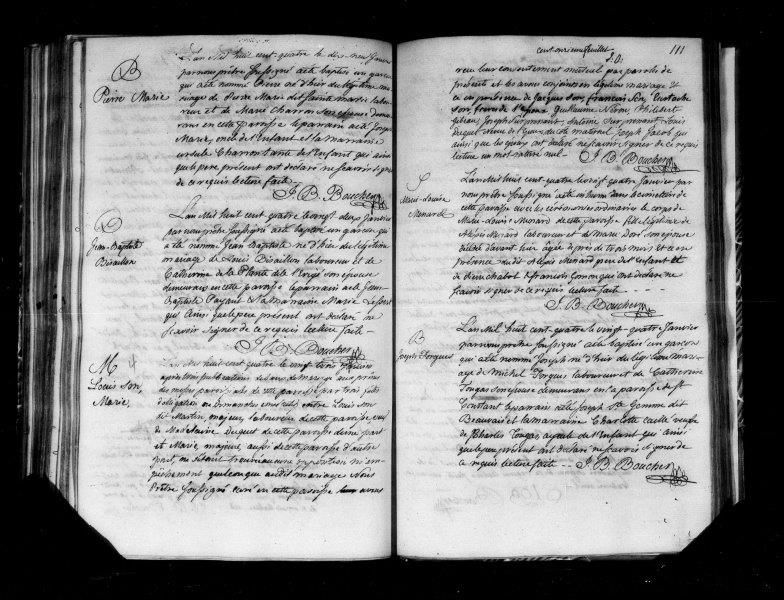 B
Pierre Marie
L'an mil huit cent quatre le dix neuf Janvier
par nous prêtre soussigné a été baptisé un garçon
qui a été nommé Pierre né d'hier du légitime ma-
riage de Pierre Marie dit Sainte marie labou-
reur et de Marie Charron son épouse demeu-
rans en cette paroisse le parrain a été Joseph
Marie, oncle de l'enfant et la marraine
ursule Charron tante de l'enfant qui ainsi
que le père présent ont déclaré ne savoir signer
de ce requis lecture fait.
J. B. Boucher
B
Jean Baptiste
Bisaillon
L'an mil huit cent quatre le vingt deux Janvier
par nous prêtre soussigné a été baptisé un garçon qui
a été nommé Jean Baptiste né d'hier du légitime
mariage de Louis Bisaillon laboureur et de
Catherine de la Plante son épouse
demeurans en cette paroisse le parrain a été Jean
Baptiste et la marraine Marie
qui ainsi que le père présent ont déclaré ne
savoir signer de ce requis lecture fait -
J. B. Boucher
M
Louis Son,
Marie,
L'an mil huit cent quatre le vingt trois Janvier
après trois publications de bans de mariage aux prônes
de messes paroissiales de cette paroisse par trois
d'obligation entre Louis Son
dit Martin, majeur laboureur de cette paroisse
de Madeleine Duquet de cette paroisse d'une part
et Marie majeure aussi de cette paroisse d'autre
part, ne s'étant trouvé aucune opposition ni em-
pêchement quelconque audit mariage Nous
Prêtre soussigné curé en cette paroisse avons
cent onzieme feuillet
111
J. B.
recu leur consentement mutuel par paroles de
présents et les avons conjoints en légitime mariage
en présence de Jacques Son, François Son, Eustache
Son, Guillaume, Philibert
Joseph Surprenant, Antoine Surprenant, Louis
Duquet oncle maternel Joseph Jacob qui
ainsi que les époux ont déclaré ne savoir signer de ce requis
lecture un mot raturé nul - J. B. Boucher
S
Marie-Louise
Menard
L'an mil huit cent quatre le vingt quatre Janvier par
nous prêtre soussigné a été inhumé dans le cimetière de
cette paroisse avec les cérémonies ordinaires le corps de
Marie Louise Menard de cette paroisse fille légitime de
Alexis Menard laboureur et de Marie son épouse
décédée d'avant hier âgée de près de trois mois et ce en
présence dudit Alexis Menard père de l'enfant et
de et François qui ont déclaré ne
savoir signer de ce requis lecture fait - - - -
J. B. Boucher
B
Joseph
L'an mil huit cent quatre le vingt-quatre Janvier
par nous prêtre soussigné a été baptisé un garçon
qui a été nommé Joseph né d'hier du légitime mari-
age de Michel laboureur et de Catherine
son épouse demeurans en la paroisse de St
Constant le parrain a été Joseph Ste Gemme dit
Beauvais et la marraine Charlotte veuve
de Charles ayeule de l'enfant qui ainsi
que le père présent ont déclaré ne savoir signer de
ce requis lecture fait - - J. B. Boucher